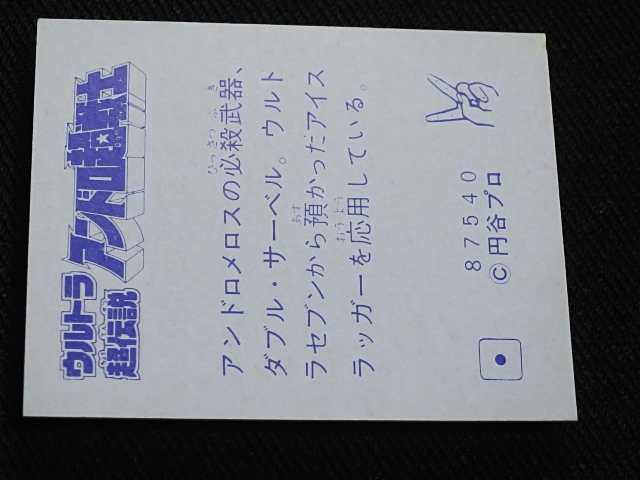 ウルトラ
超伝説
アンドロ超戦士
アンドロメロスの必殺武器、
ダブル・サーベル。ウルト
ラセブンから預かったアイス
ラッガーを応用している。
87540
©円谷プロ